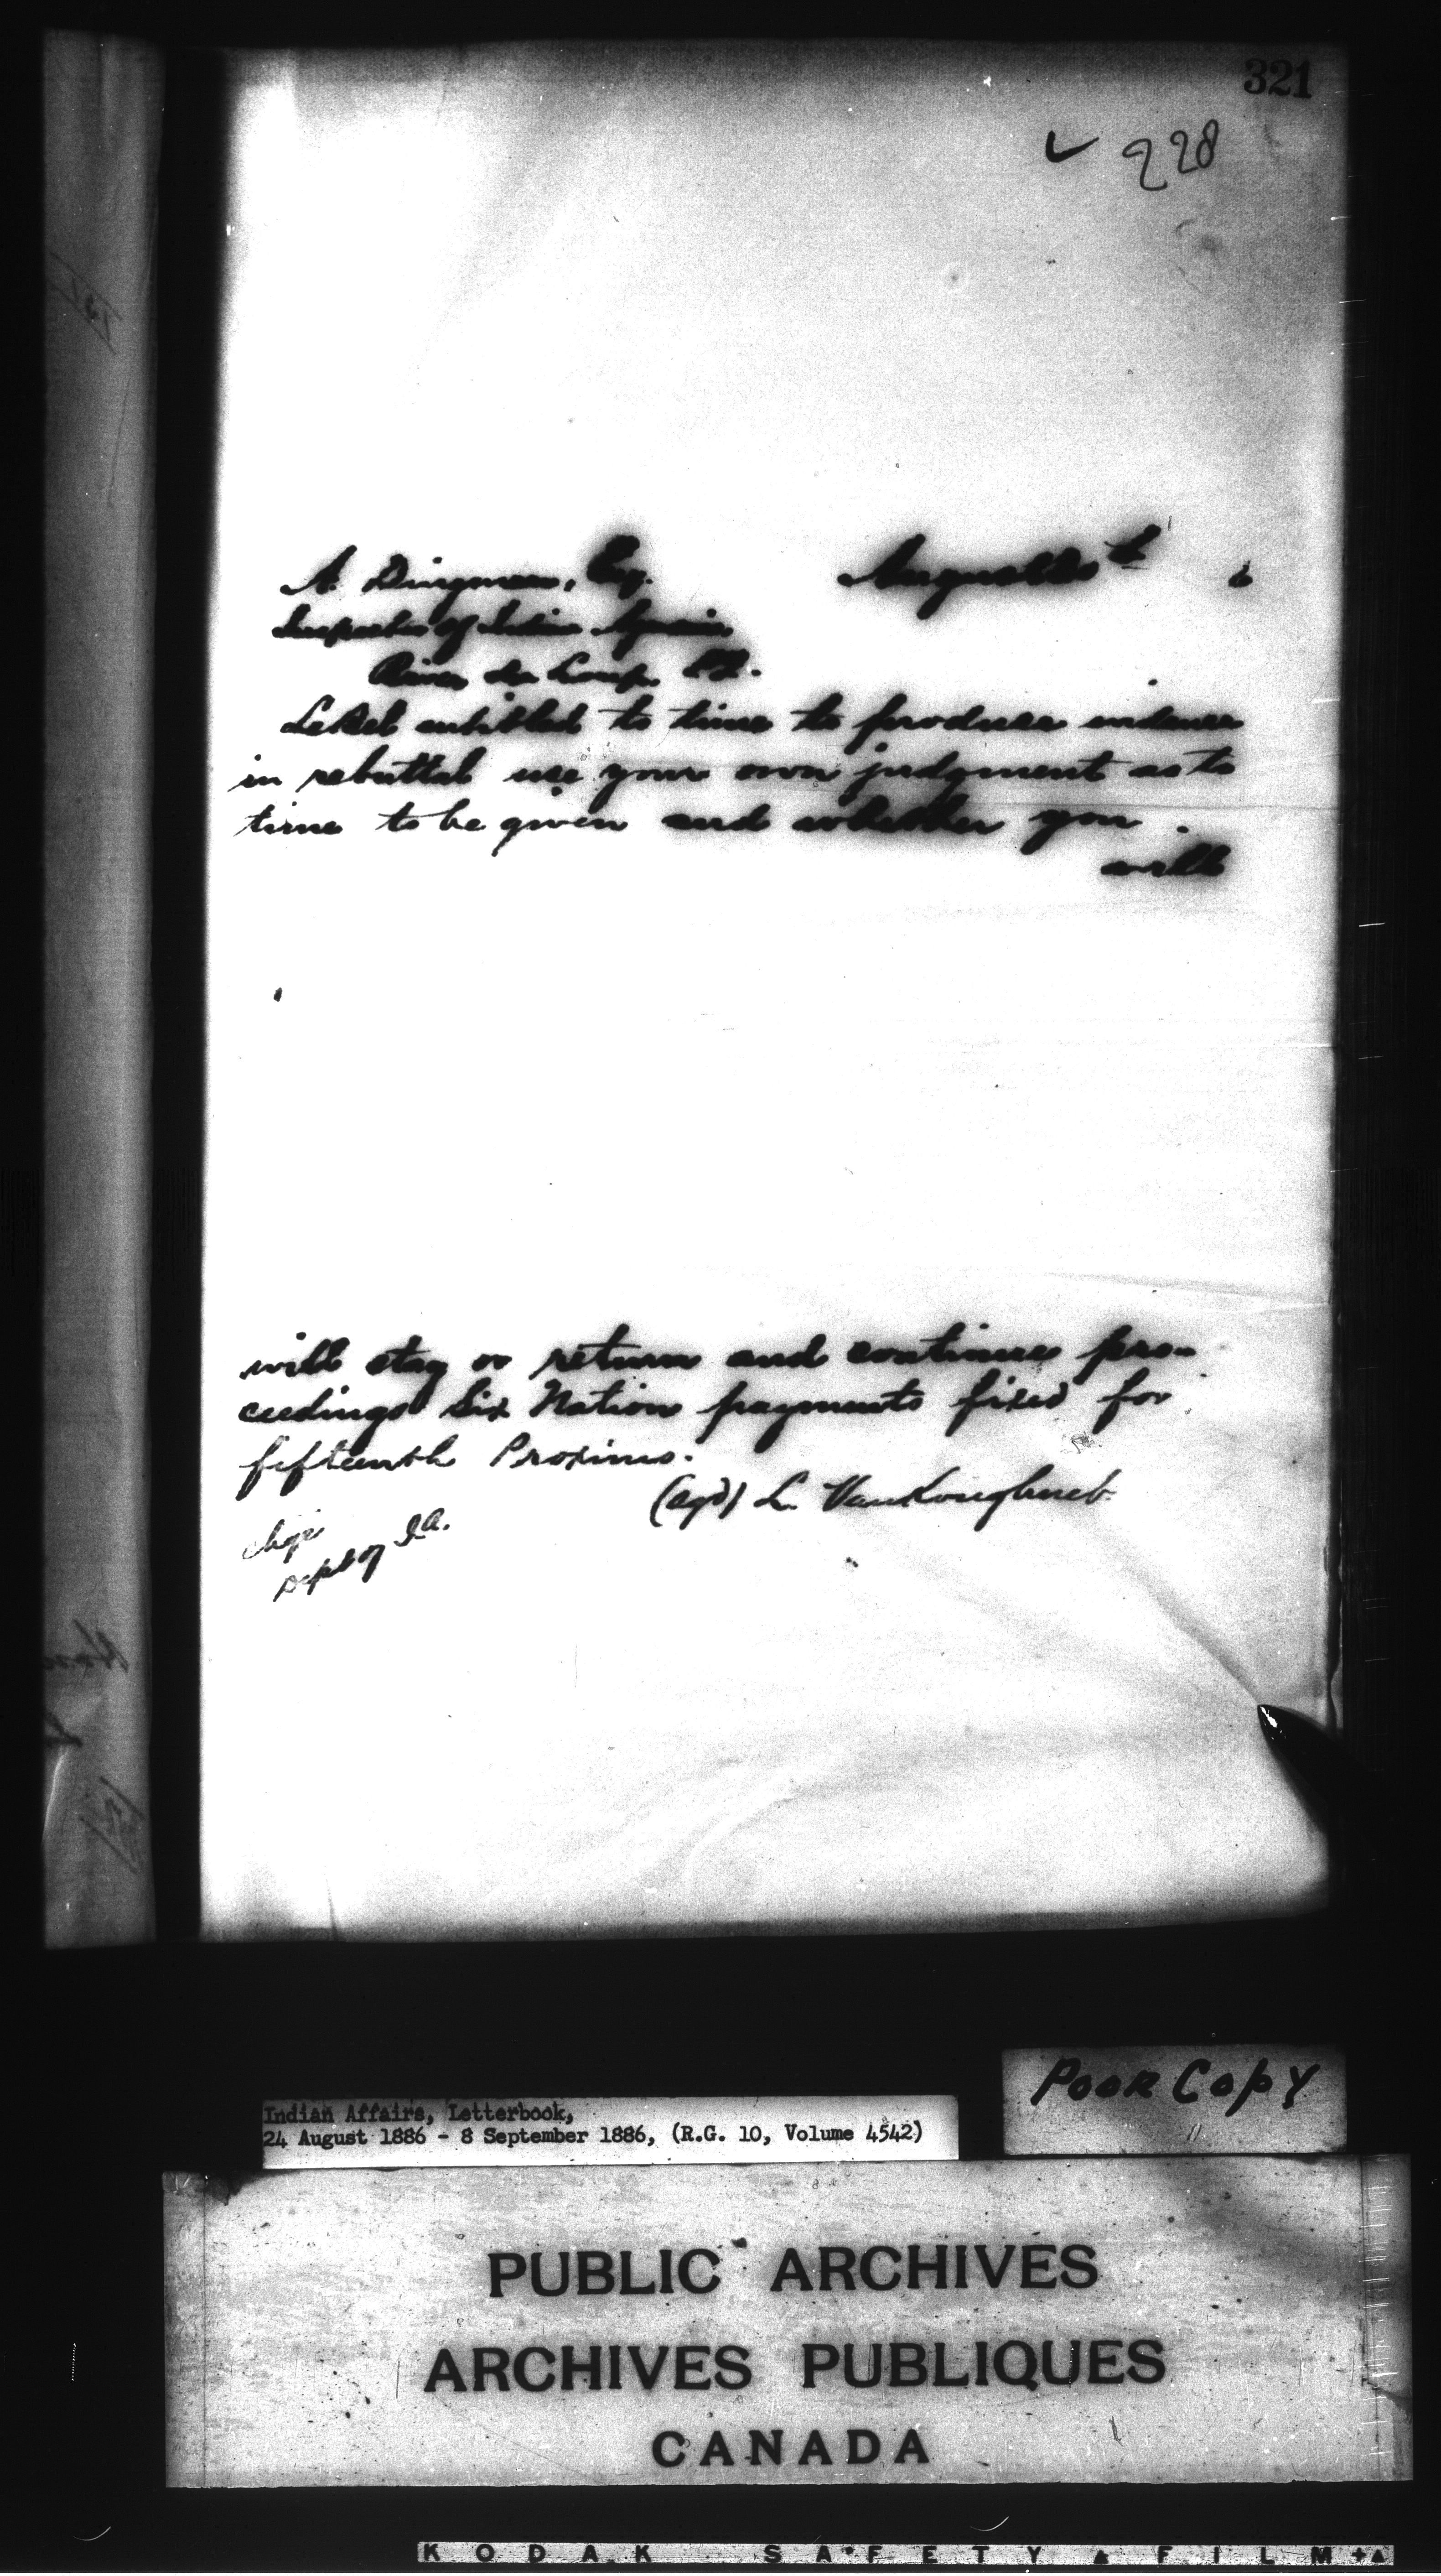 321
228
A. Dingman, Esq. August
6
Inspector of Indian Agencies
River du Loup. P.Q.
LeBel entitled to time to produce evidence
in rebuttal use your own judgment as to
time to be given and whether you
will
will stay or return and continue pro-
ceedings Six Nation payments fixed for
fifteenth Proximo.
(Sgd) L. VanKoughnet
chge
Dept of I.A.
Indian Affairs, Letterbook,
24 August 1886 - 8 September 1886, (R.G. 10, Volume 4542)
POOR COPY
PUBLIC ARCHIVES
ARCHIVES PUBLIQUES
CANADA
KODAK SAFETY FILM